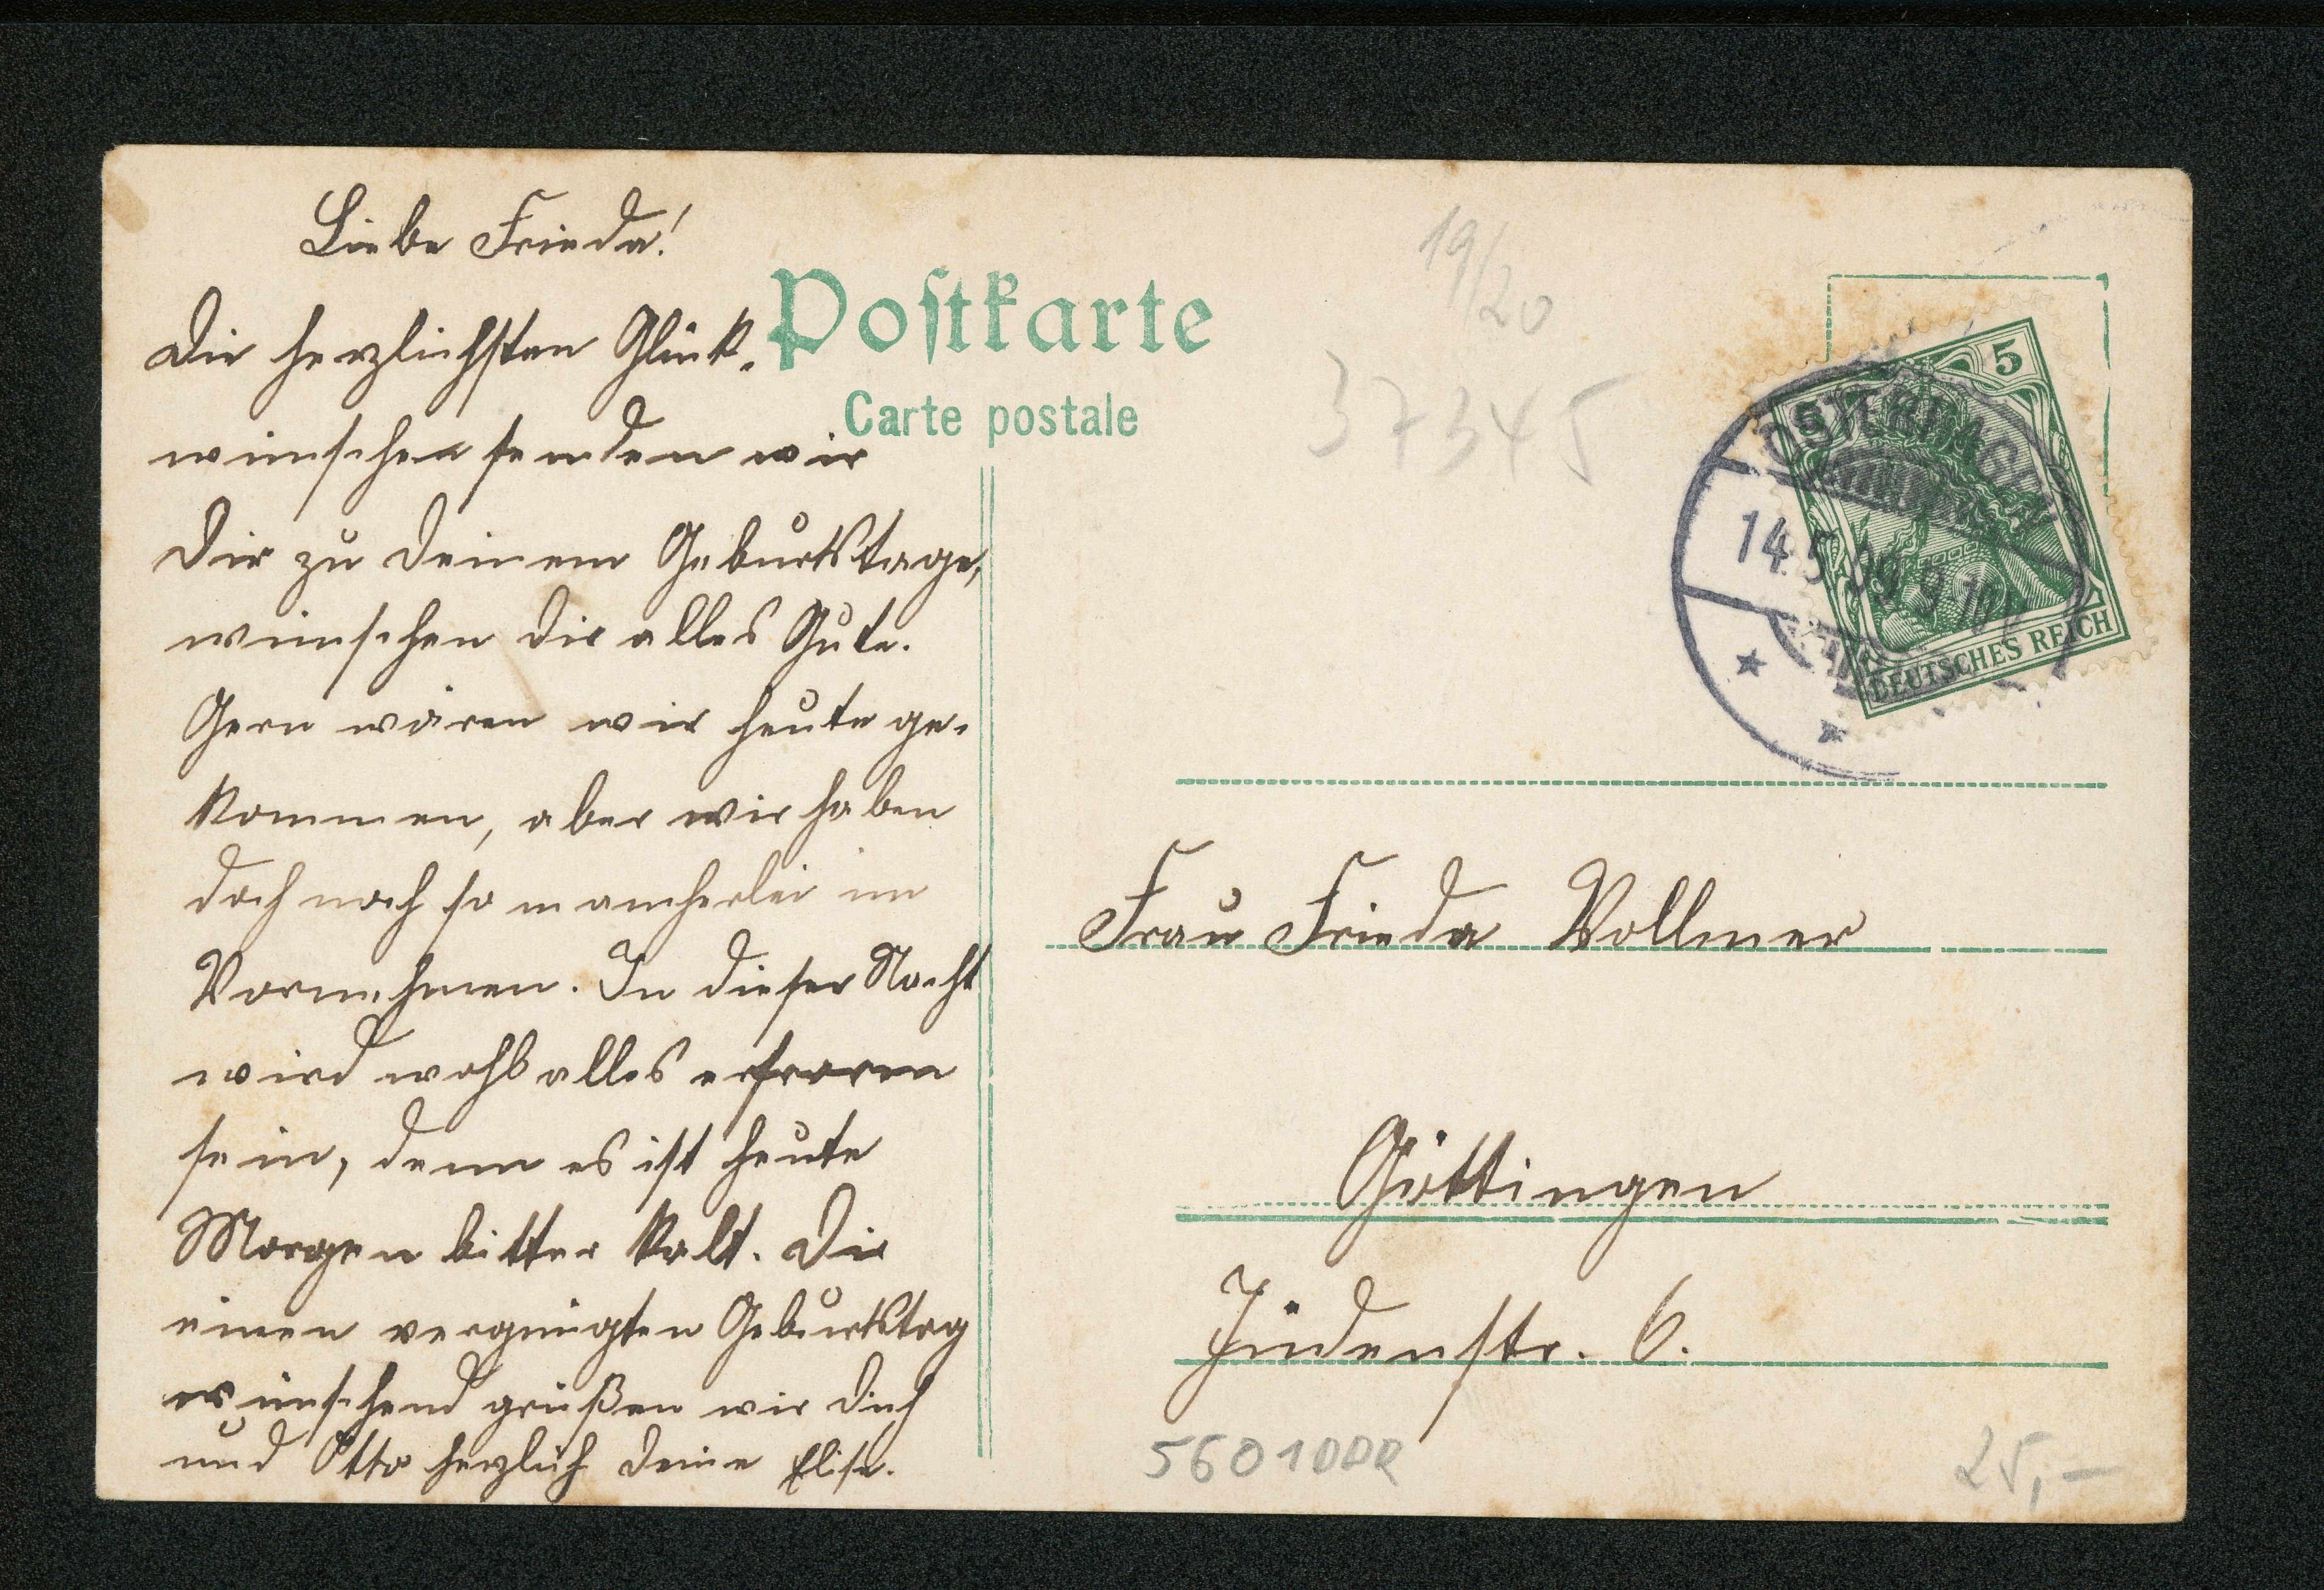 Liebe Frieda!
Die herzlichsten Glück-
wünsche senden wir
Dir zu Deinem Geburtstage,
wünschen Dir alles Gute.
Gern wären wir heute ge-
kommen, aber wir haben
doch noch so mancherlei im
Vornehmen. In dieser Nacht
wird wohl alles erfroren
sein, denn es ist heute
Morgen bitter kalt. Dir
einen vergnügten Geburtstag
wünschend grüßen wir Dich
und Otto herzlich Deine Elise.
Postkarte
Carte postale
19/20
37345
5
5
14.5.09.9-10
DEUTSCHES REICH
Frau Frieda Vollmer
Göttingen
Jüdenstr. 6.
5601000
25,-